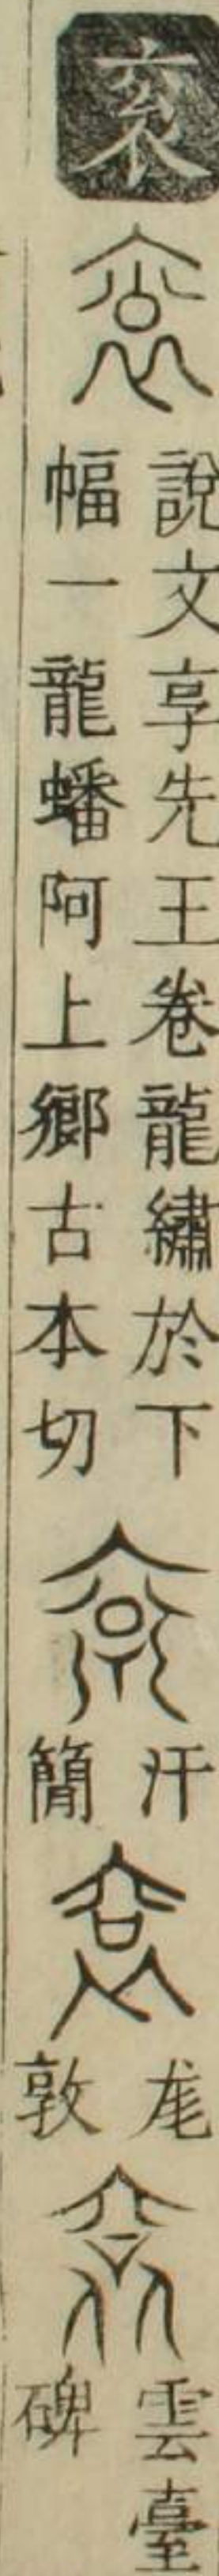 衮
說文享先王卷龍繡於下
幅一龍蟠阿上鄉古本切
汗
簡
尨
敦
雲臺
碑